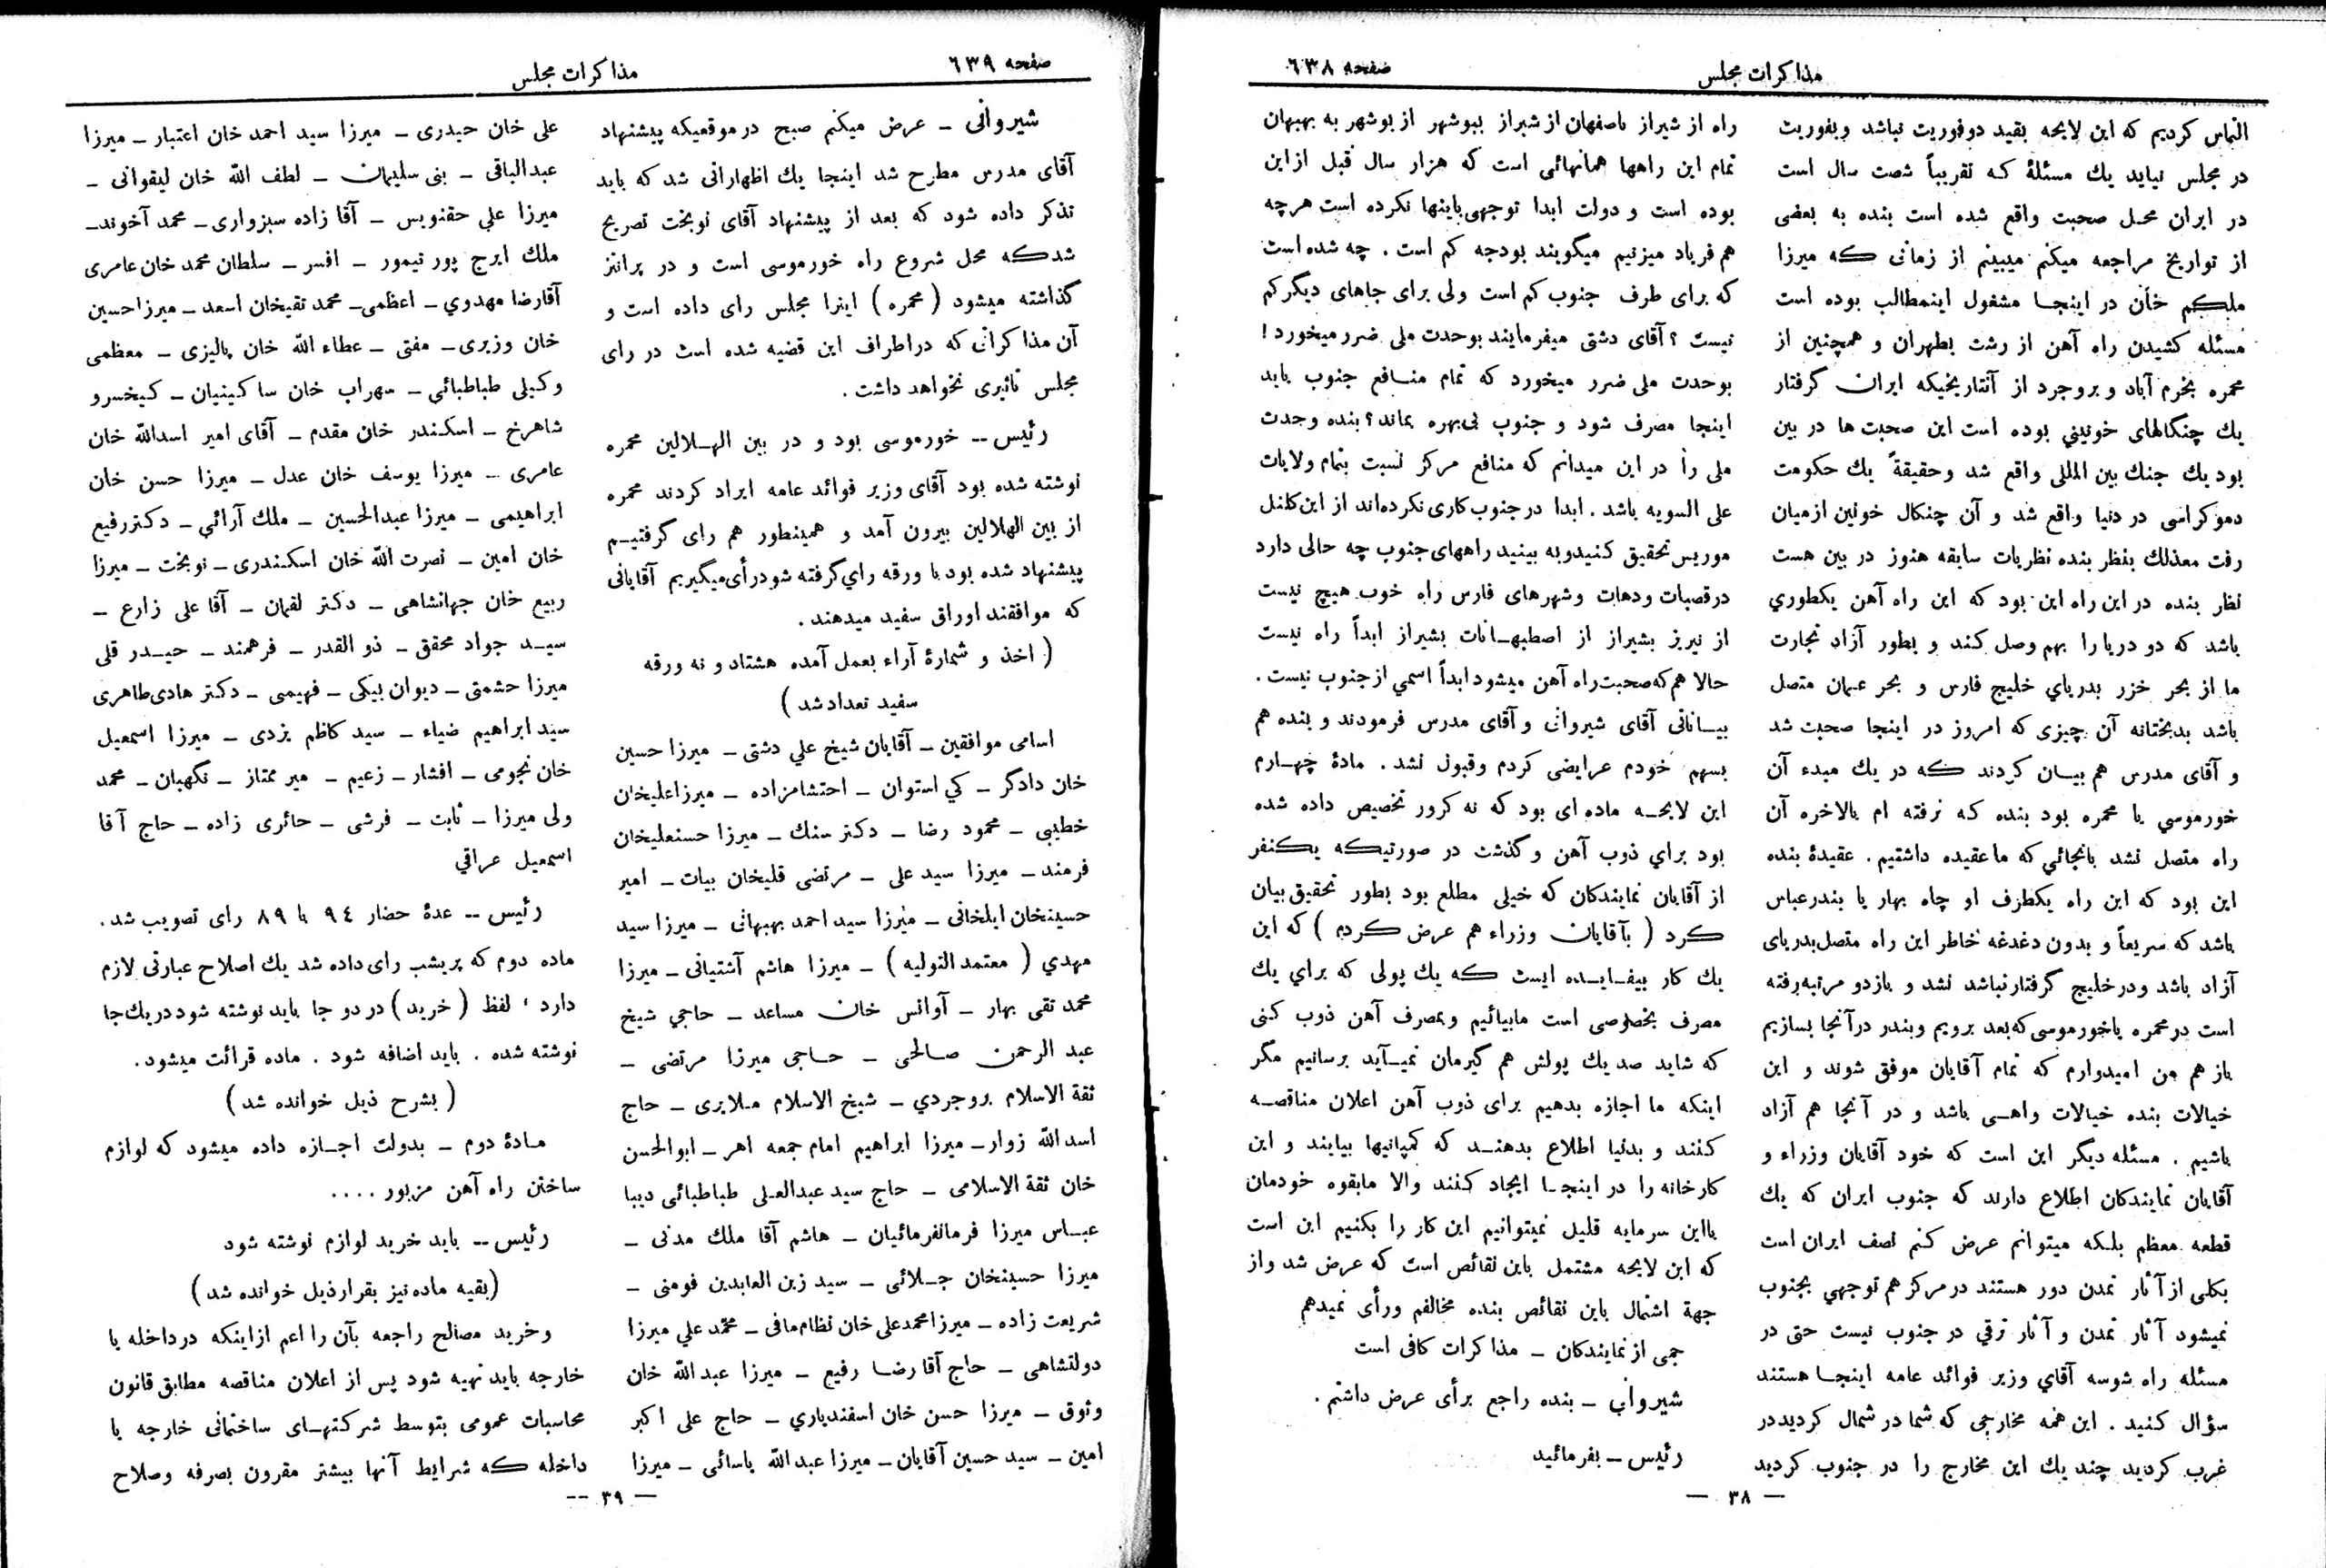 صفحه ٦٣٨
مذاکرات مجلس
التماس کردیم که این لایحه بقید دوفوریت نباشد وبفوریت
در مجلس نیاید یك مسئلهٔ که تقریباً شصت سال است
در ایران محل صحبت واقع شده است بنده به بعضی
از تواریخ مراجعه میکنم میبینم از زمانی که میرزا
ملکم خان در اینجا مشغول اینمطالب بوده است
مسئله کشیدن راه آهن از رشت بطهران و همچنین از
محمره بخرم آباد و بروجرد از آنتاریخیکه ایران گرفتار
یك چنگالهای خونینی بوده است این صحبت ها در بین
بود یك جنك بین المللی واقع شد وحقیقةً یك حکومت
دموکراسی در دنیا واقع شد و آن چنکال خونین ازمیان
رفت معذلك بنظر بنده نظریات سابقه هنوز در بین هست
نظر بنده در این راه این بود که این راه آهن یکطوری
باشد که دو دریا را بهم وصل کند و بطور آزاد تجارت
ما از بحر خزر بدریای خلیج فارس و بحر عمان متصل
باشد بدبختانه آن چیزی که امروز در اینجا صحبت شد
و آقای مدرس هم بیان کردند که در یك مبدء آن
خورموسی یا محمره بود بنده که نرفته ام بالاخره آن
راه متصل نشد بانجائی که ما عقیده داشتیم . عقیدهٔ بنده
این بود که این راه یکطرف او چاه بهار یا بندرعباس
باشد که سریعاً و بدون دغدغه خاطر این راه متصل بدریای
آزاد باشد ودرخلیج گرفتارنباشد نشد و بازدو مرتبه رفته
است در محمره یاخورموسی که بعد برویم وبندر درآنجا بسازیم
باز هم من امیدوارم که تمام آقایان موفق شوند و این
خیالات بنده خیالات واهی باشد و در آنجا هم آزاد
باشیم . مسئله دیگر این است که خود آقایان وزراء و
آقایان نمایندکان اطلاع دارند که جنوب ایران که یك
قطعه معظم بلکه میتوانم عرض کنم نصف ایران است
بکلی از آثار تمدن دور هستند در مرکز هم توجهی بجنوب
نمیشود آثار تمدن و آثار ترقی در جنوب نیست حتی در
مسئله راه شوسه آقای وزیر فوائد عامه اینجا هستند
سؤال کنید . این همه مخارجی که شما در شمال کردید در
غرب کردید چند یك این مخارج را در جنوب کردید
راه از شیراز باصفهان از شیراز ببوشهر از بوشهر به بهبهان
تمام این راهها همانهائی است که هزار سال قبل ازاین
بوده است و دولت ابدا توجهی باینها نکرده است هرچه
هم فریاد میزنیم میگویند بودجه کم است . چه شده است
که برای طرف جنوب کم است ولی برای جاهای دیگر کم
نیست ؟ آقای دشتی میفرمایند بوحدت ملی ضرر میخورد !
بوحدت ملی ضرر میخورد که تمام منافع جنوب باید
اینجا مصرف شود و جنوب بی‌بهره بماند؟ بنده وحدت
ملی را در این میدانم که منافع مرکز نسبت بتمام ولایات
علی السویه باشد . ابدا در جنوب کاری نکرده‌اند از این کلنل
موریس تحقیق کنید و به بینید راههای جنوب چه حالی دارد
در قصبات ودهات وشهرهای فارس راه خوب هیچ نیست
از نیریز بشیراز از اصطهبانات بشیراز ابداً راه نیست
حالا هم که صحبت راه آهن میشود ابداً اسمی از جنوب نیست .
بیاناتی آقای شیروانی و آقای مدرس فرمودند و بنده هم
بسهم خودم عرایضی کردم وقبول نشد . مادهٔ چهارم
این لایحه ماده ای بود که نه کرور تخصیص داده شده
بود برای ذوب آهن و گذشت در صورتیکه یکنفر
از آقایان نمایندکان که خیلی مطلع بود بطور تحقیق بیان
کرد ( بآقایان وزراء هم عرض کردم ) که این
یك کار بیفایده ایست که یك پولی که برای یك
مصرف بخصوصی است مابیائیم وبمصرف آهن ذوب کنی
که شاید صد یك پولش هم گیرمان نمیآید برسانیم مگر
اینکه ما اجازه بدهیم برای ذوب آهن اعلان مناقصه
کنند و بدنیا اطلاع بدهند که کمپانیها بیایند و این
کارخانه را در اینجا ایجاد کنند والا مابقوه خودمان
بااین سرمایه قلیل نمیتوانیم این کار را بکنیم این است
که این لایحه مشتمل باین نقائص است که عرض شد واز
جهة اشتمال باین نقائص بنده مخالفم ورأی نمیدهم
جمعی از نمایندکان ـ مذاکرات کافی است
شیروانی ـ بنده راجع برأی عرض داشتم .
رئیس ـ بفرمائید
— ٣٨ —
صفحه ٦٣٩
مذاکرات مجلس
شیروانی ـ عرض میکنم صبح در موقعیکه پیشنهاد
آقای مدرس مطرح شد اینجا یك اظهاراتی شد که باید
تذکر داده شود که بعد از پیشنهاد آقای نوبخت تصریح
شدکه محل شروع راه خورموسی است و در پرانتز
گذاشته میشود ( محمره ) اینرا مجلس رای داده است و
آن مذاکراتی که دراطراف این قضیه شده است در رای
مجلس تاثیری نخواهد داشت .
رئیس ــ خورموسی بود و در بین الهلالین محمره
نوشته شده بود آقای وزیر فوائد عامه ایراد کردند محمره
از بین الهلالین بیرون آمد و همینطور هم رای گرفتیم
پیشنهاد شده بود با ورقه رای گرفته شود رأی میگیریم آقایانی
که موافقند اوراق سفید میدهند .
( اخذ و شمارهٔ آراء بعمل آمده هشتاد و نه ورقه
سفید تعداد شد )
اسامی موافقین ـ آقایان شیخ علی دشتی ـ میرزا حسین
خان دادگر ـ کی استوان ـ احتشامزاده ـ میرزاعلیخان
خطیبی ـ محمود رضا ـ دکتر سنك ـ میرزا حسنعلیخان
فرمند ـ میرزا سید علی ـ مرتضی قلیخان بیات ـ امیر
حسینخان ایلخانی ـ میرزا سید احمد بهبهانی ـ میرزا سید
مهدی ( معتمد التولیه ) ـ میرزا هاشم آشتیانی ـ میرزا
محمد تقی بهار ـ آوانس خان مساعد ـ حاجی شیخ
عبد الرحمن صالحی ـ حاجی میرزا مرتضی ـ
ثقة الاسلام بروجردی ـ شیخ الاسلام ملایری ـ حاج
اسد الله زوار ـ میرزا ابراهیم امام جمعه اهر ـ ابوالحسن
خان ثقة الاسلامی ـ حاج سید عبدالعلی طباطبائی دیبا
عباس میرزا فرمانفرمائیان ـ هاشم آقا ملك مدنی ـ
میرزا حسینخان جلائی ـ سید زین العابدین فومنی ـ
شریعت زاده ـ میرزا محمد علی خان نظام مافی ـ محمد علی میرزا
دولتشاهی ـ حاج آقا رضا رفیع ـ میرزا عبد الله خان
وثوق ـ میرزا حسن خان اسفندیاری ـ حاج علی اکبر
امین ـ سید حسین آقایان ـ میرزا عبد الله یاسائی ـ میرزا
علی خان حیدری ـ میرزا سید احمد خان اعتبار ـ میرزا
عبدالباقی ـ بنی سلیمان ـ لطف الله خان لیقوانی ـ
میرزا علی حقنویس ـ آقا زاده سبزواری ـ محمد آخوندـ
ملك ایرج پور تیمور ـ افسر ـ سلطان محمد خان عامری
آقارضا مهدوی ـ اعظمی ـ محمد تقیخان اسعد ـ میرزا حسین
خان وزیری ـ مفتی ـ عطاء الله خان پالیزی ـ معظمی
وکیلی طباطبائی ـ سهراب خان ساکینیان ـ کیخسرو
شاهرخ ـ اسکندر خان مقدم ـ آقای امیر اسدالله خان
عامری ـ میرزا یوسف خان عدل ـ میرزا حسن خان
ابراهیمی ـ میرزا عبدالحسین ـ ملك آرائی ـ دکتر رفیع
خان امین ـ نصرت الله خان اسکندری ـ نوبخت ـ میرزا
ربیع خان جهانشاهی ـ دکتر لقمان ـ آقا علی زارع ـ
سید جواد محقق ـ ذو القدر ـ فرهمند ـ حیدر قلی
میرزا حشمتی ـ دیوان بیکی ـ فهیمی ـ دکتر هادی طاهری
سید ابراهیم ضیاء ـ سید کاظم یزدی ـ میرزا اسمعیل
خان نجومی ـ افشار ـ زعیم ـ میر ممتاز ـ نگهبان ـ محمد
ولی میرزا ـ ثابت ـ فرشی ـ حائری زاده ـ حاج آقا
اسمعیل عراقی
رئیس ــ عدهٔ حضار ٩٤ با ٨٩ رای تصویب شد .
ماده دوم که پریشب رای داده شد یك اصلاح عبارتی لازم
دارد ، لفظ ( خرید ) در دو جا باید نوشته شود در یك جا
نوشته شده . باید اضافه شود . ماده قرائت میشود .
( بشرح ذیل خوانده شد )
مادهٔ دوم ـ بدولت اجازه داده میشود که لوازم
ساختن راه آهن مزبور ....
رئیس ــ باید خرید لوازم نوشته شود
(بقیه ماده نیز بقرار ذیل خوانده شد )
وخرید مصالح راجعه بآن را اعم ازاینکه درداخله یا
خارجه باید تهیه شود پس از اعلان مناقصه مطابق قانون
محاسبات عمومی بتوسط شرکتهای ساختمانی خارجه یا
داخله که شرایط آنها بیشتر مقرون بصرفه وصلاح
— ٣٩ --